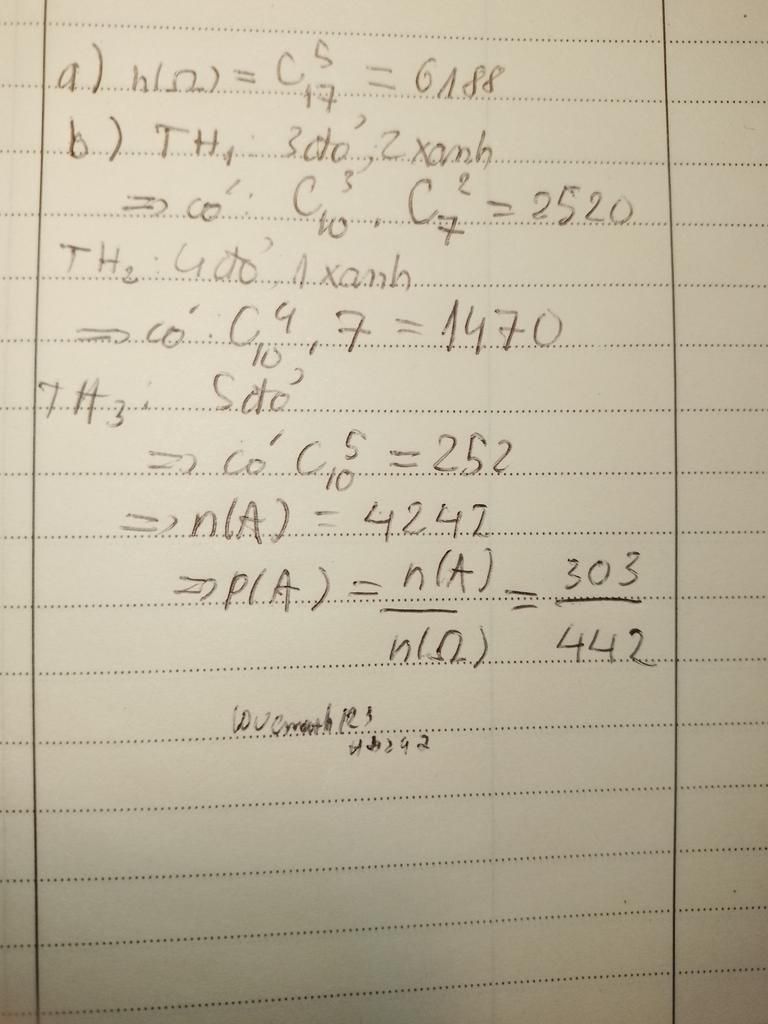 a) n(Ω) = C₁₇⁵ = 6188
b) TH₁: 3 đỏ, 2 xanh
=> có: C₁₀³ . C₇² = 2520
TH₂: 4 đỏ, 1 xanh
=> có: C₁₀⁴ . 7 = 1470
TH₃: 5 đỏ
=> có C₁₀⁵ = 252
=> n(A) = 4242
=> P(A) = n(A)/n(Ω) = 303/442